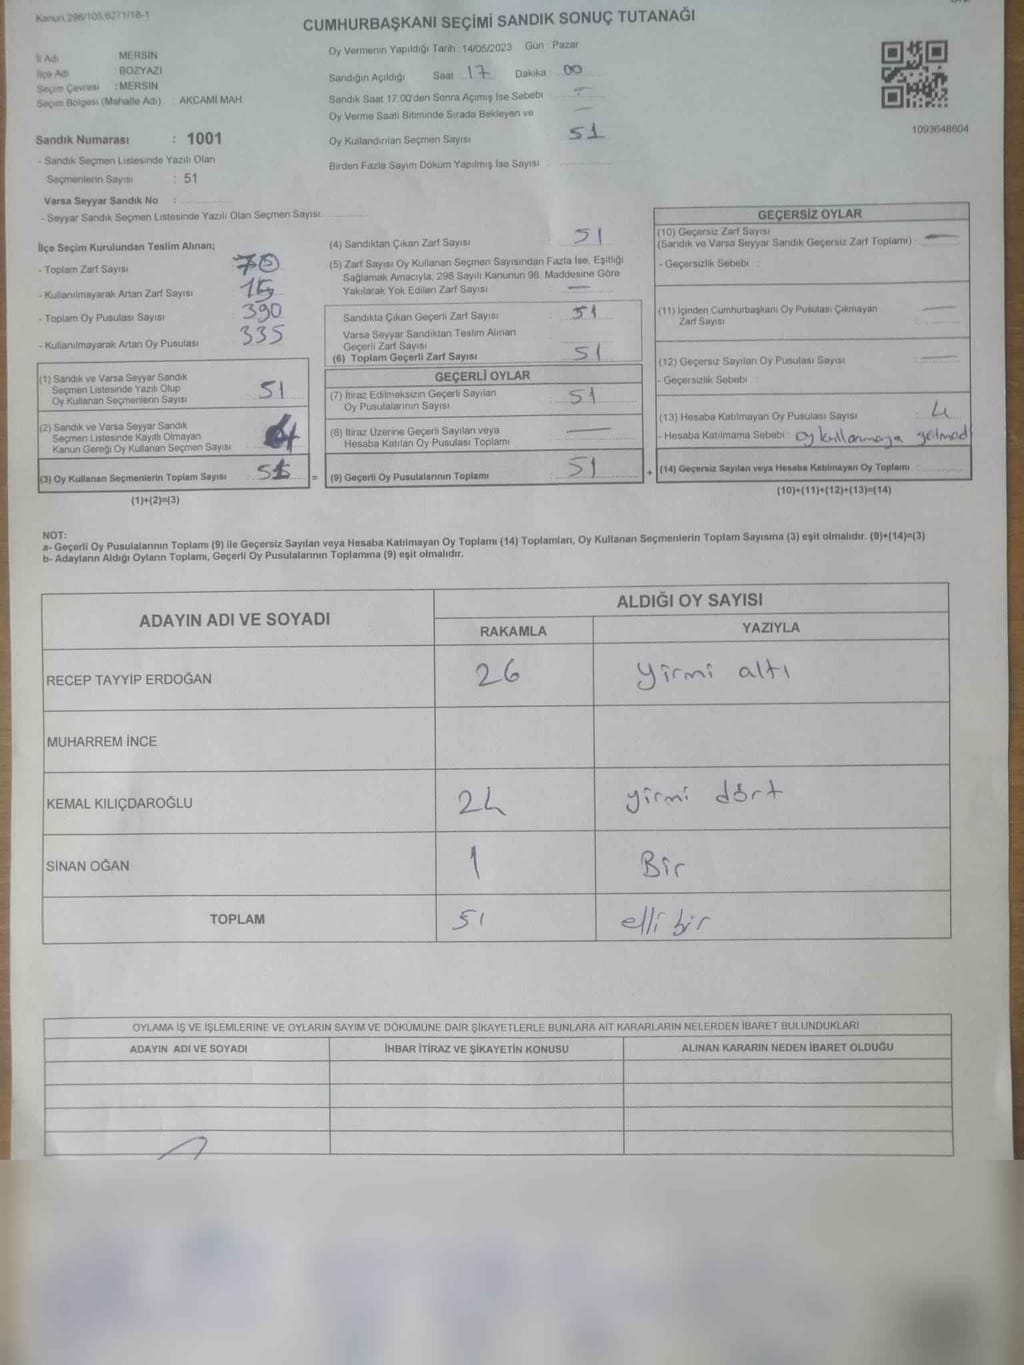 Kanun 298/105,6271/18-1
CUMHURBAŞKANI SEÇİMİ SANDIK SONUÇ TUTANAĞI
İl Adı : MERSİN
İlçe Adı : BOZYAZI
Seçim Çevresi : MERSİN
Seçim Bölgesi (Mahalle Adı) : AKCAMİ MAH.
Oy Vermenin Yapıldığı Tarih : 14/05/2023 Gün : Pazar
Sandığın Açıldığı Saat : 17 Dakika : 00
Sandık Saat 17:00'den Sonra Açımış İse Sebebi : -
Oy Verme Saati Bitiminde Sırada Bekleyen ve —
Oy Kullandırılan Seçmen Sayısı 51
Birden Fazla Sayım Döküm Yapılmış İse Sayısı :
1093648804
Sandık Numarası : 1001
- Sandık Seçmen Listesinde Yazılı Olan
Seçmenlerin Sayısı : 51
Varsa Seyyar Sandık No :
- Seyyar Sandık Seçmen Listesinde Yazılı Olan Seçmen Sayısı:
İlçe Seçim Kurulundan Teslim Alınan;
- Toplam Zarf Sayısı
- Kullanılmayarak Artan Zarf Sayısı : 15
- Toplam Oy Pusulası Sayısı : 390
- Kullanılmayarak Artan Oy Pusulası : 335
(1) Sandık ve Varsa Seyyar Sandık
Seçmen Listesinde Yazılı Olup
Oy Kullanan Seçmenlerin Sayısı : 51
(2) Sandık ve Varsa Seyyar Sandık
Seçmen Listesinde Kayıtlı Olmayan
Kanun Gereği Oy Kullanan Seçmen Sayısı :
(3) Oy Kullanan Seçmenlerin Toplam Sayısı :
(1)+(2)=(3)
(4) Sandıktan Çıkan Zarf Sayısı : 51
(5) Zarf Sayısı Oy Kullanan Seçmen Sayısından Fazla İse, Eşitliği
Sağlamak Amacıyla; 298 Sayılı Kanunun 98. Maddesine Göre
Yakılarak Yok Edilen Zarf Sayısı : —
Sandıkta Çıkan Geçerli Zarf Sayısı : 51
Varsa Seyyar Sandıktan Teslim Alınan
Geçerli Zarf Sayısı
(6) Toplam Geçerli Zarf Sayısı : 51
GEÇERLİ OYLAR
(7) İtiraz Edilmeksizin Geçerli Sayılan
Oy Pusulalarının Sayısı : 51
(8) İtiraz Üzerine Geçerli Sayılan veya
Hesaba Katılan Oy Pusulası Toplamı : —
= (9) Geçerli Oy Pusulalarının Toplamı : 51 +
GEÇERSİZ OYLAR
(10) Geçersiz Zarf Sayısı
(Sandık ve Varsa Seyyar Sandık Geçersiz Zarf Toplamı) : —
- Geçersizlik Sebebi :
(11) İçinden Cumhurbaşkanı Oy Pusulası Çıkmayan
Zarf Sayısı : —
(12) Geçersiz Sayılan Oy Pusulası Sayısı : —
- Geçersizlik Sebebi :
(13) Hesaba Katılmayan Oy Pusulası Sayısı : 4
- Hesaba Katılmama Sebebi : oy kullanmaya gelmedi
(14) Geçersiz Sayılan veya Hesaba Katılmayan Oy Toplamı :
(10)+(11)+(12)+(13)=(14)
NOT:
a- Geçerli Oy Pusulalarının Toplamı (9) ile Geçersiz Sayılan veya Hesaba Katılmayan Oy Toplamı (14) Toplamları, Oy Kullanan Seçmenlerin Toplam Sayısına (3) eşit olmalıdır. (9)+(14)=(3)
b- Adayların Aldığı Oyların Toplamı, Geçerli Oy Pusulalarının Toplamına (9) eşit olmalıdır.
ADAYIN ADI VE SOYADI ALDIĞI OY SAYISI
RAKAMLA YAZIYLA
RECEP TAYYİP ERDOĞAN 26 yirmi altı
MUHARREM İNCE
KEMAL KILIÇDAROĞLU 24 yirmi dört
SİNAN OĞAN 1 Bir
TOPLAM 51 elli bir
OYLAMA İŞ VE İŞLEMLERİNE VE OYLARIN SAYIM VE DÖKÜMÜNE DAİR ŞİKAYETLERLE BUNLARA AİT KARARLARIN NELERDEN İBARET BULUNDUKLARI
ADAYIN ADI VE SOYADI İHBAR İTİRAZ VE ŞİKAYETİN KONUSU ALINAN KARARIN NEDEN İBARET OLDUĞU